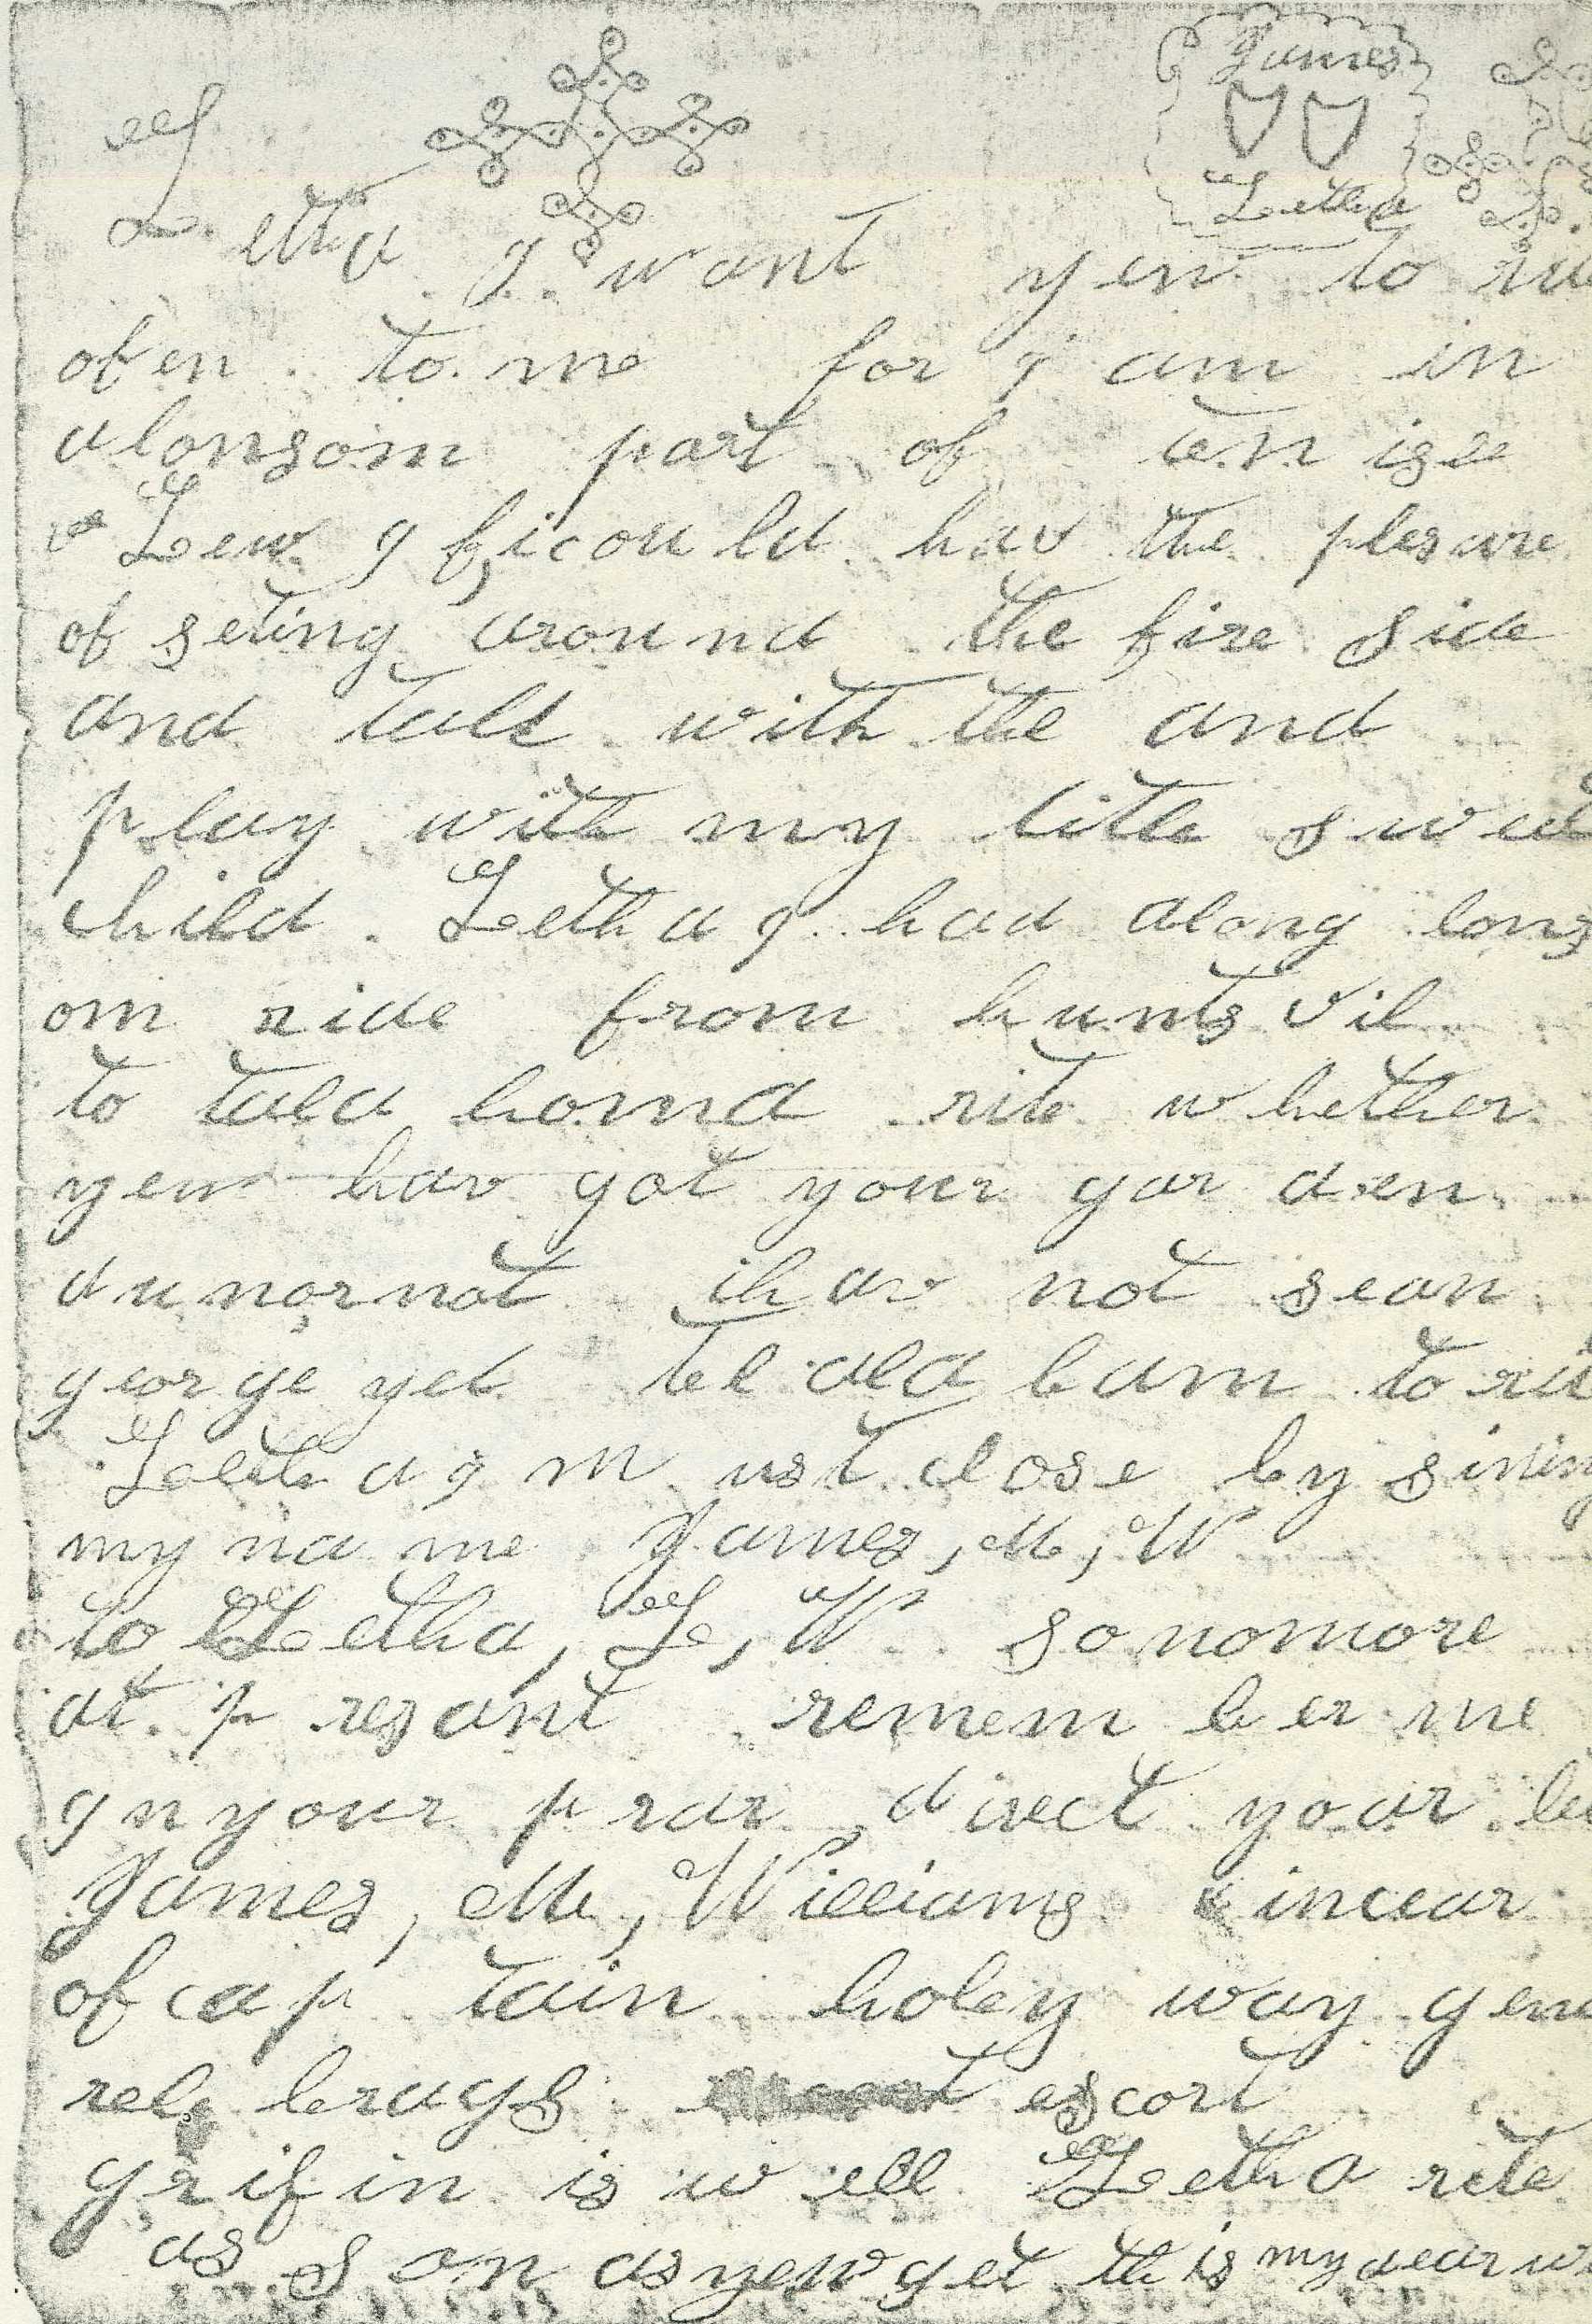 James
Letha
Letha I want yew to
ofen to me for I am in
alonsom part of tenisee
Lew I ficould hav the plesure
of seting around the fire side
and talk with the and
play with my litle
child. Letha I had along lons
om ride from hunts vil
to tala homa rite whether
yew hav got your gar den
du nornot ihav not sean
george yet tel ald bam to
Letha I m ust close by sining
my na me James, M, W
to Letha, L, W so nomore
at p resant remem ber me
In your prar direct your
James, M, Williams in cear
of cap tain holey way gene
rel bragS escort
grifin is w ell Letha rite
as Son as yew get this my dear